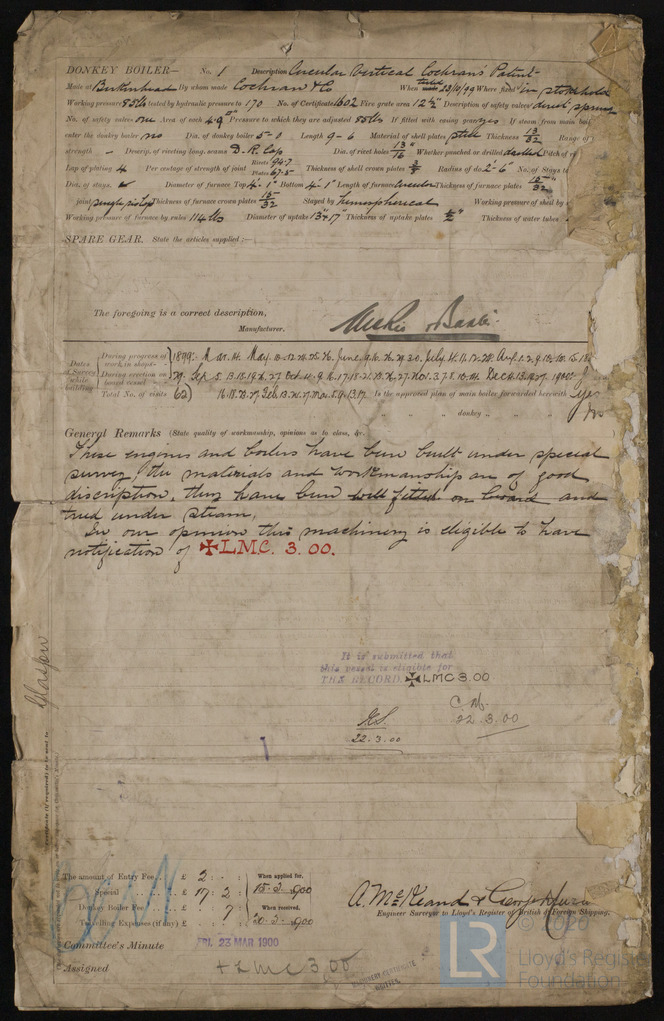 DONKEY BOILER— No. 1 Description Circular Vertical Cochran's Patent
Made at Birkenhead By whom made Cochran & Co When tested 23/11/99 Where fixed in stokehold
Working pressure 85lb tested by hydraulic pressure to 170 No. of Certificate 1602 Fire grate area 12½ Description of safety valves direct spring
No. of safety valves one Area of each 4.9" Pressure to which they are adjusted 88lbs If fitted with easing gear yes If steam from main boilers
enter the donkey boiler no Dia. of donkey boiler 5-0 Length 9-6 Material of shell plates steel Thickness 13/32 Range of
strength - Descrip. of riveting long. seams D.R. Lap Dia. of rivet holes 13/16" Whether punched or drilled drilled Pitch of
Lap of plating 4 Per centage of strength of joint Rivets 94.7 Plates 67.5 Thickness of shell crown plates Radius of do. 2'-6" No. of Stays to
Dia. of stays. Diameter of furnace Top 4'-1" Bottom 4'-1" Length of furnace Circular Thickness of furnace plates 15/32"
joint Thickness of furnace crown plates 15/32 Stayed by Hemispherical Working pressure of shell by
Working pressure of furnace by rules 114 lbs Diameter of uptake 13"×17" Thickness of uptake plates ½" Thickness of water tubes
SPARE GEAR. State the articles supplied:—
The foregoing is a correct description,
Manufacturer.
Dates of Survey while building
During progress of work in shops - - 1899:- Mar. 14. May. 10. 12. 24. 25. 26. June. 9. 16. 26. 29. 30. July. 4. 11. 12. 28. Aug. 1. 2. 9. 10. 15.
During erection on board vessel - - - 29. Sep. 5. 13. 18. 19. 26. 27 Oct. 4. 9. 16. 17. 18. 21. 23. 26. 27. Nov. 3. 7. 8. 10. 14. Dec. 4. 13. 19. 27. 1900
Total No. of visits 62) 16. 18. 23. 27. Feb. 13. 21. 27. Mar. 5. 9. 13. 17. Is the approved plan of main boiler forwarded herewith Yes
" " " donkey " " " No
General Remarks (State quality of workmanship, opinions as to class, &c.
These engines and boilers have been built under special
survey, the materials and workmanship are of good
discription, they have been well fitted on board and
tried under steam,
In our opinion this machinery is eligible to have
notification of ✠LMC. 3. 00.
It is submitted that
this vessel is eligible for
THE RECORD. ✠LMC 3.00
22.3.00
22.3.00
Glasgow
The amount of Entry Fee . . £ 2 : - : When applied for,
Special . . . . . . £ 17 : 2 : 15. 3. 1900
Donkey Boiler Fee . . . £ : 7 : When received,
Travelling Expenses (if any) £ : : 20. 3. 1900
Engineer Surveyor to Lloyd's Register of British & Foreign Shipping.
Committee's Minute FRI. 23 MAR 1900
Assigned + LMC 3.00
MACHINERY CERTIFICATE
WRITTEN.
© 2020
LR
Lloyd's Register
Foundation